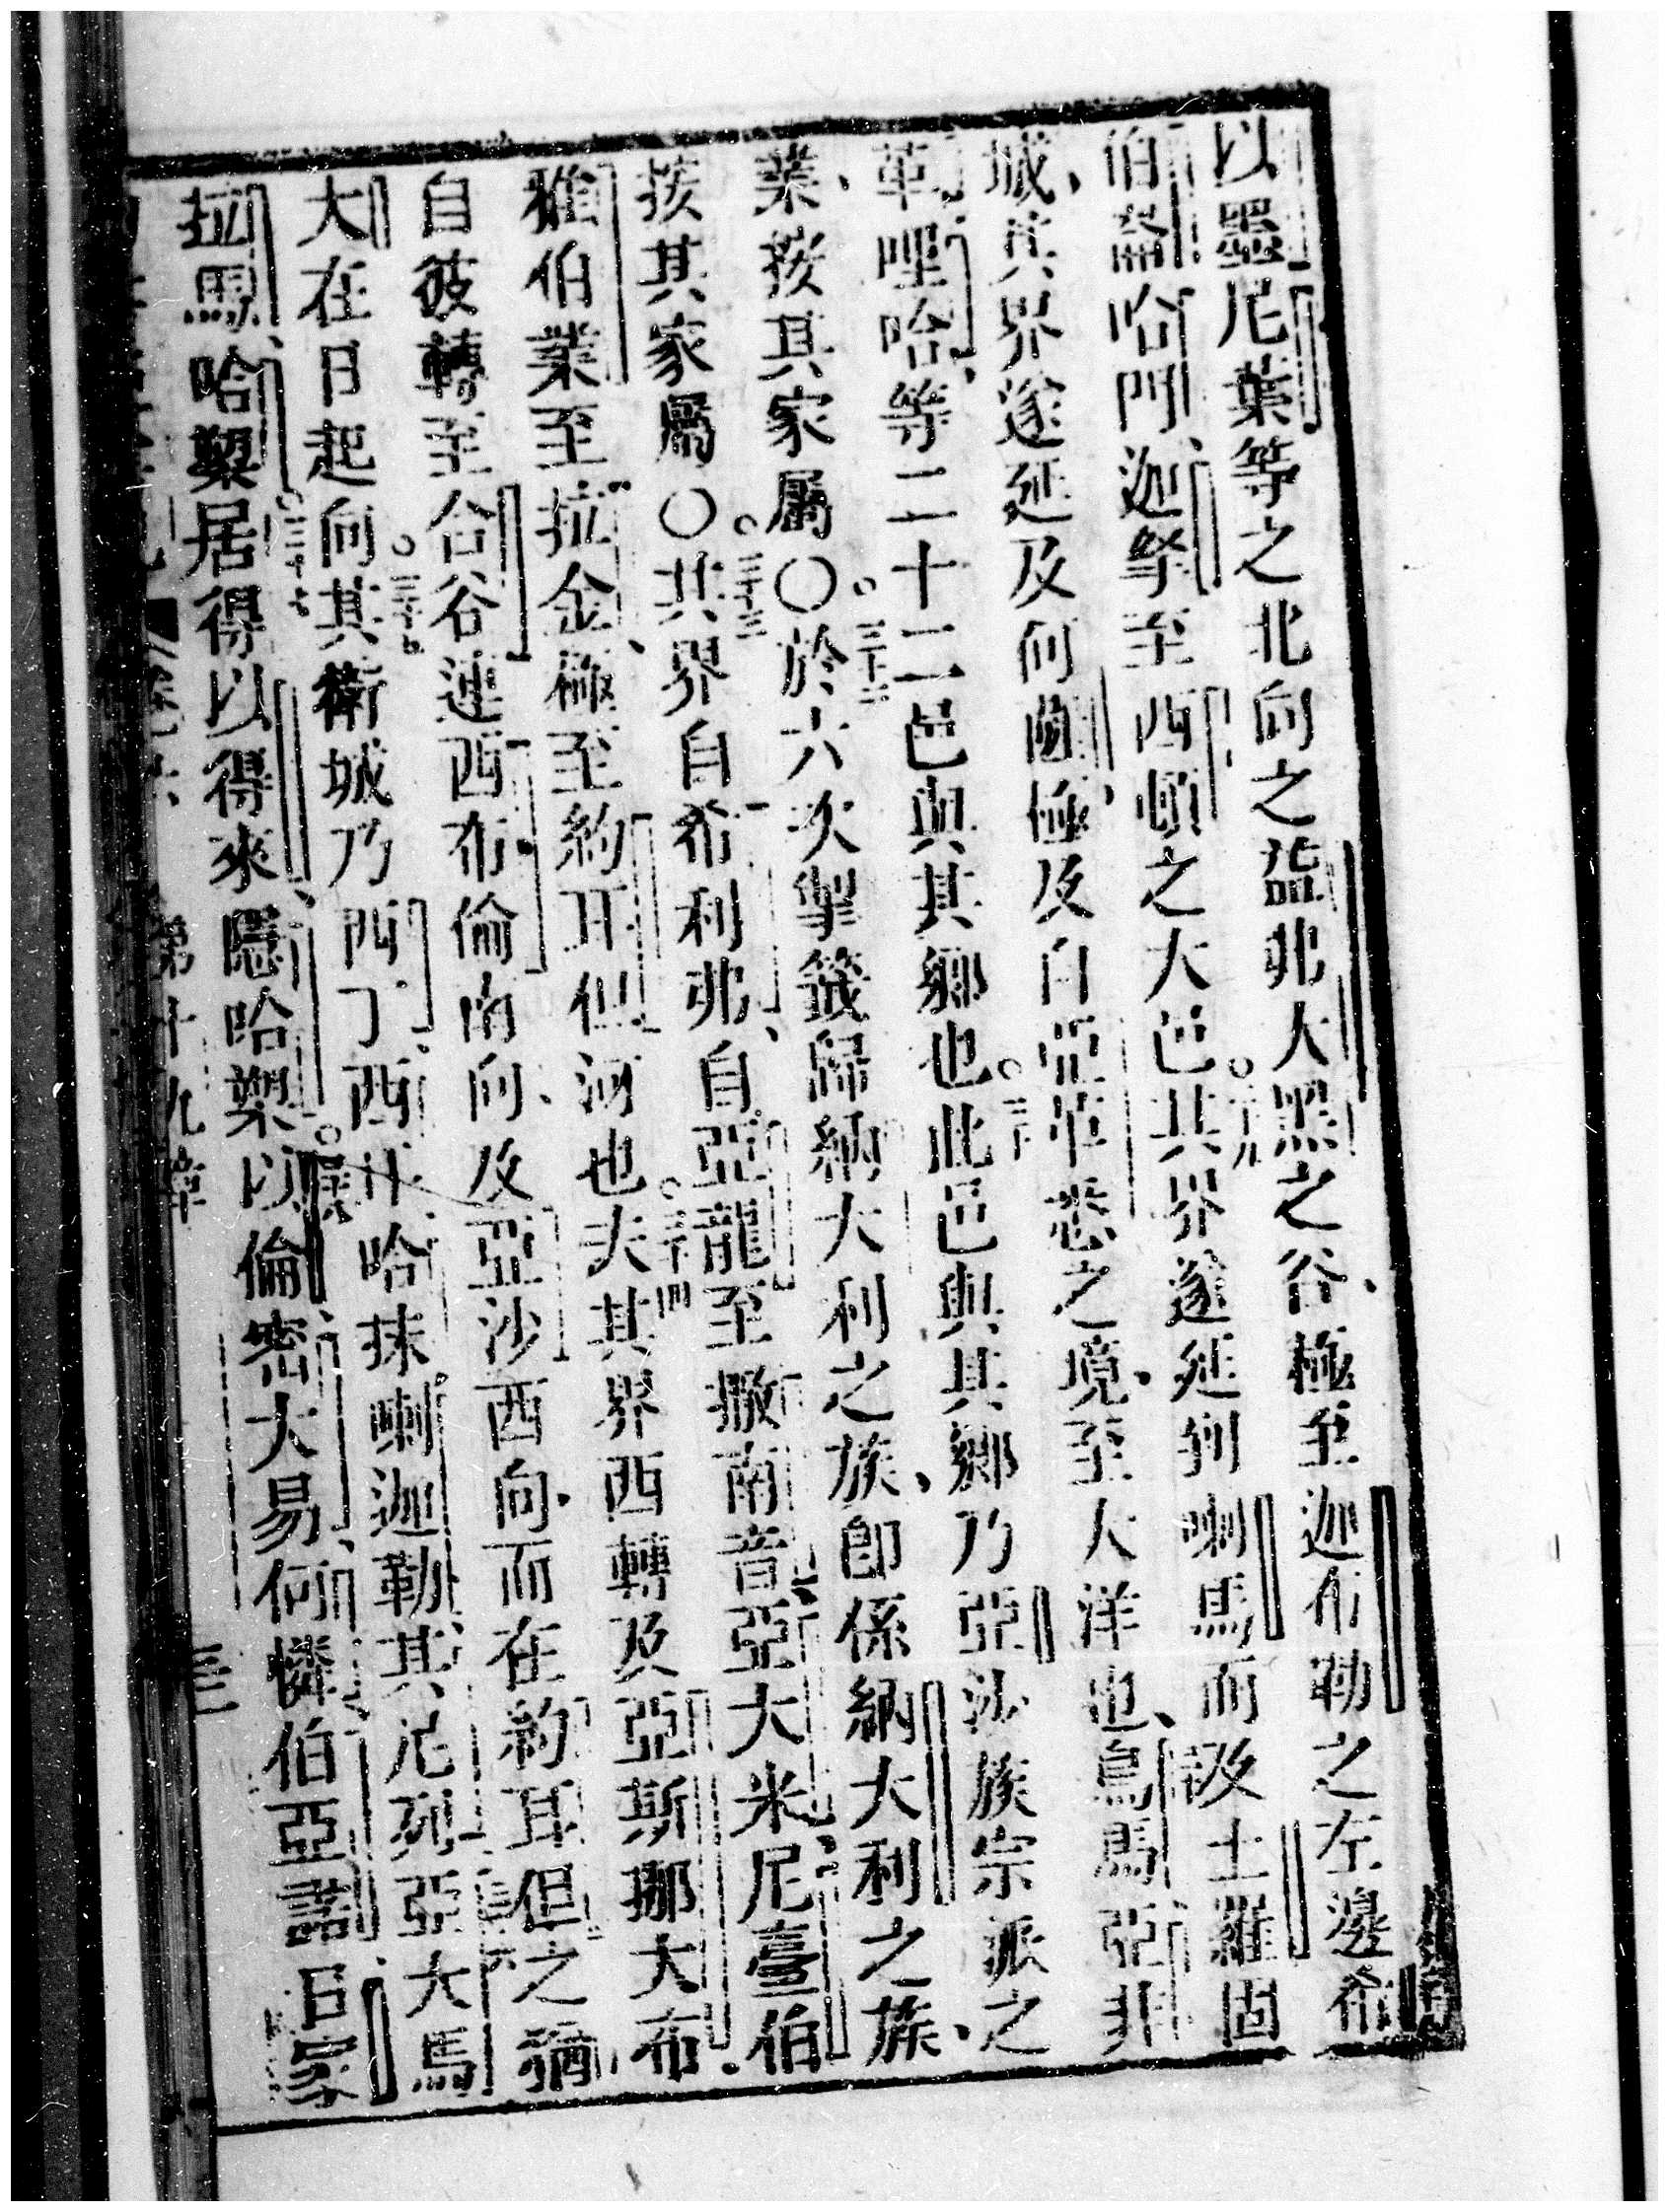 以墨尼葉等之北向之益弗大黑之谷、極至迦布勒之左邊、希
伯崙、哈門、迦拏至西頓之大邑。二十九其界遂延到喇馬而及土羅固
城、其界遂延及何薗、極及自亞革悉之境、至大洋也、烏馬、亞非
革、哩哈、等二十二邑與其鄉也。三十一此邑與其鄉乃亞沙族宗派之
業、按其家屬。○三十二於六次掣籤歸納大利之族、即係納大利之族、
按其家屬。○三十三其界自希利弗、自亞龍至撒南音、亞大米尼臺伯
雅伯業至拉金、極至約耳但河也。三十四夫其界西轉及亞斯挪大布、
自彼轉至谷谷連西布倫南向、及亞沙西向、而在約耳但之猶
大在日起向。三十五其衛城乃西丁、西耳、哈抹、喇迦勒、其尼列、三十六亞大馬
拉馬、哈槊、三十七居得以得來、隱哈槊。三十八以倫、密大易、何憐、伯亞諾、日家
第十九章